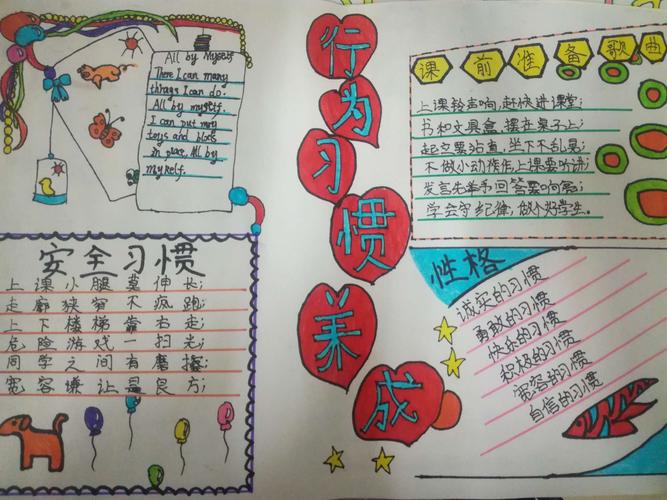 All by Myself
There I can many
things I can do.
All by myself.
I can put my
toys and blocks
in place. All by
myself.
安全习惯
上课小腿莫伸长;
走廊狭窄不疯跑;
上下楼梯靠右走;
危险游戏一扫光;
同学之间有磨擦;
宽容谦让显良方;
行为习惯养成
课前准备歌曲
上课铃声响,赶快进课堂;
书和文具盒,摆在桌子上;
起立要站直,坐下不乱晃;
不做小动作,上课要听讲;
发言先举手,回答要响亮;
学会守纪律,做个好学生。
性格
诚实的习惯
勇敢的习惯
快乐的习惯
积极的习惯
宽容的习惯
自信的习惯